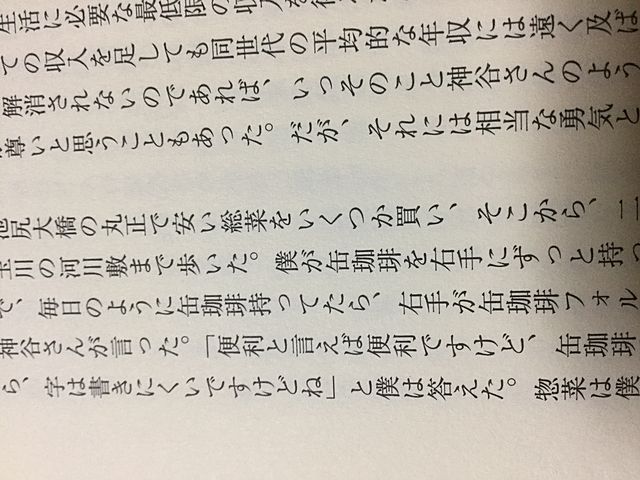 生活に必要な最低限の収入を得
ての収入を足しても同世代の平均的な年収には遠く及ば
解消されないのであれば、いっそのこと神谷さんのよう
尊いと思うこともあった。だが、それには相当な勇気と
池尻大橋の丸正で安い総菜をいくつか買い、そこから、二
玉川の河川敷まで歩いた。僕が缶珈琲を右手にずっと持っ
で、毎日のように缶珈琲持ってたら、右手が缶珈琲フォル
神谷さんが言った。「便利と言えば便利ですけど、缶珈琲
ら、字は書きにくいですけどね」と僕は答えた。惣菜は僕